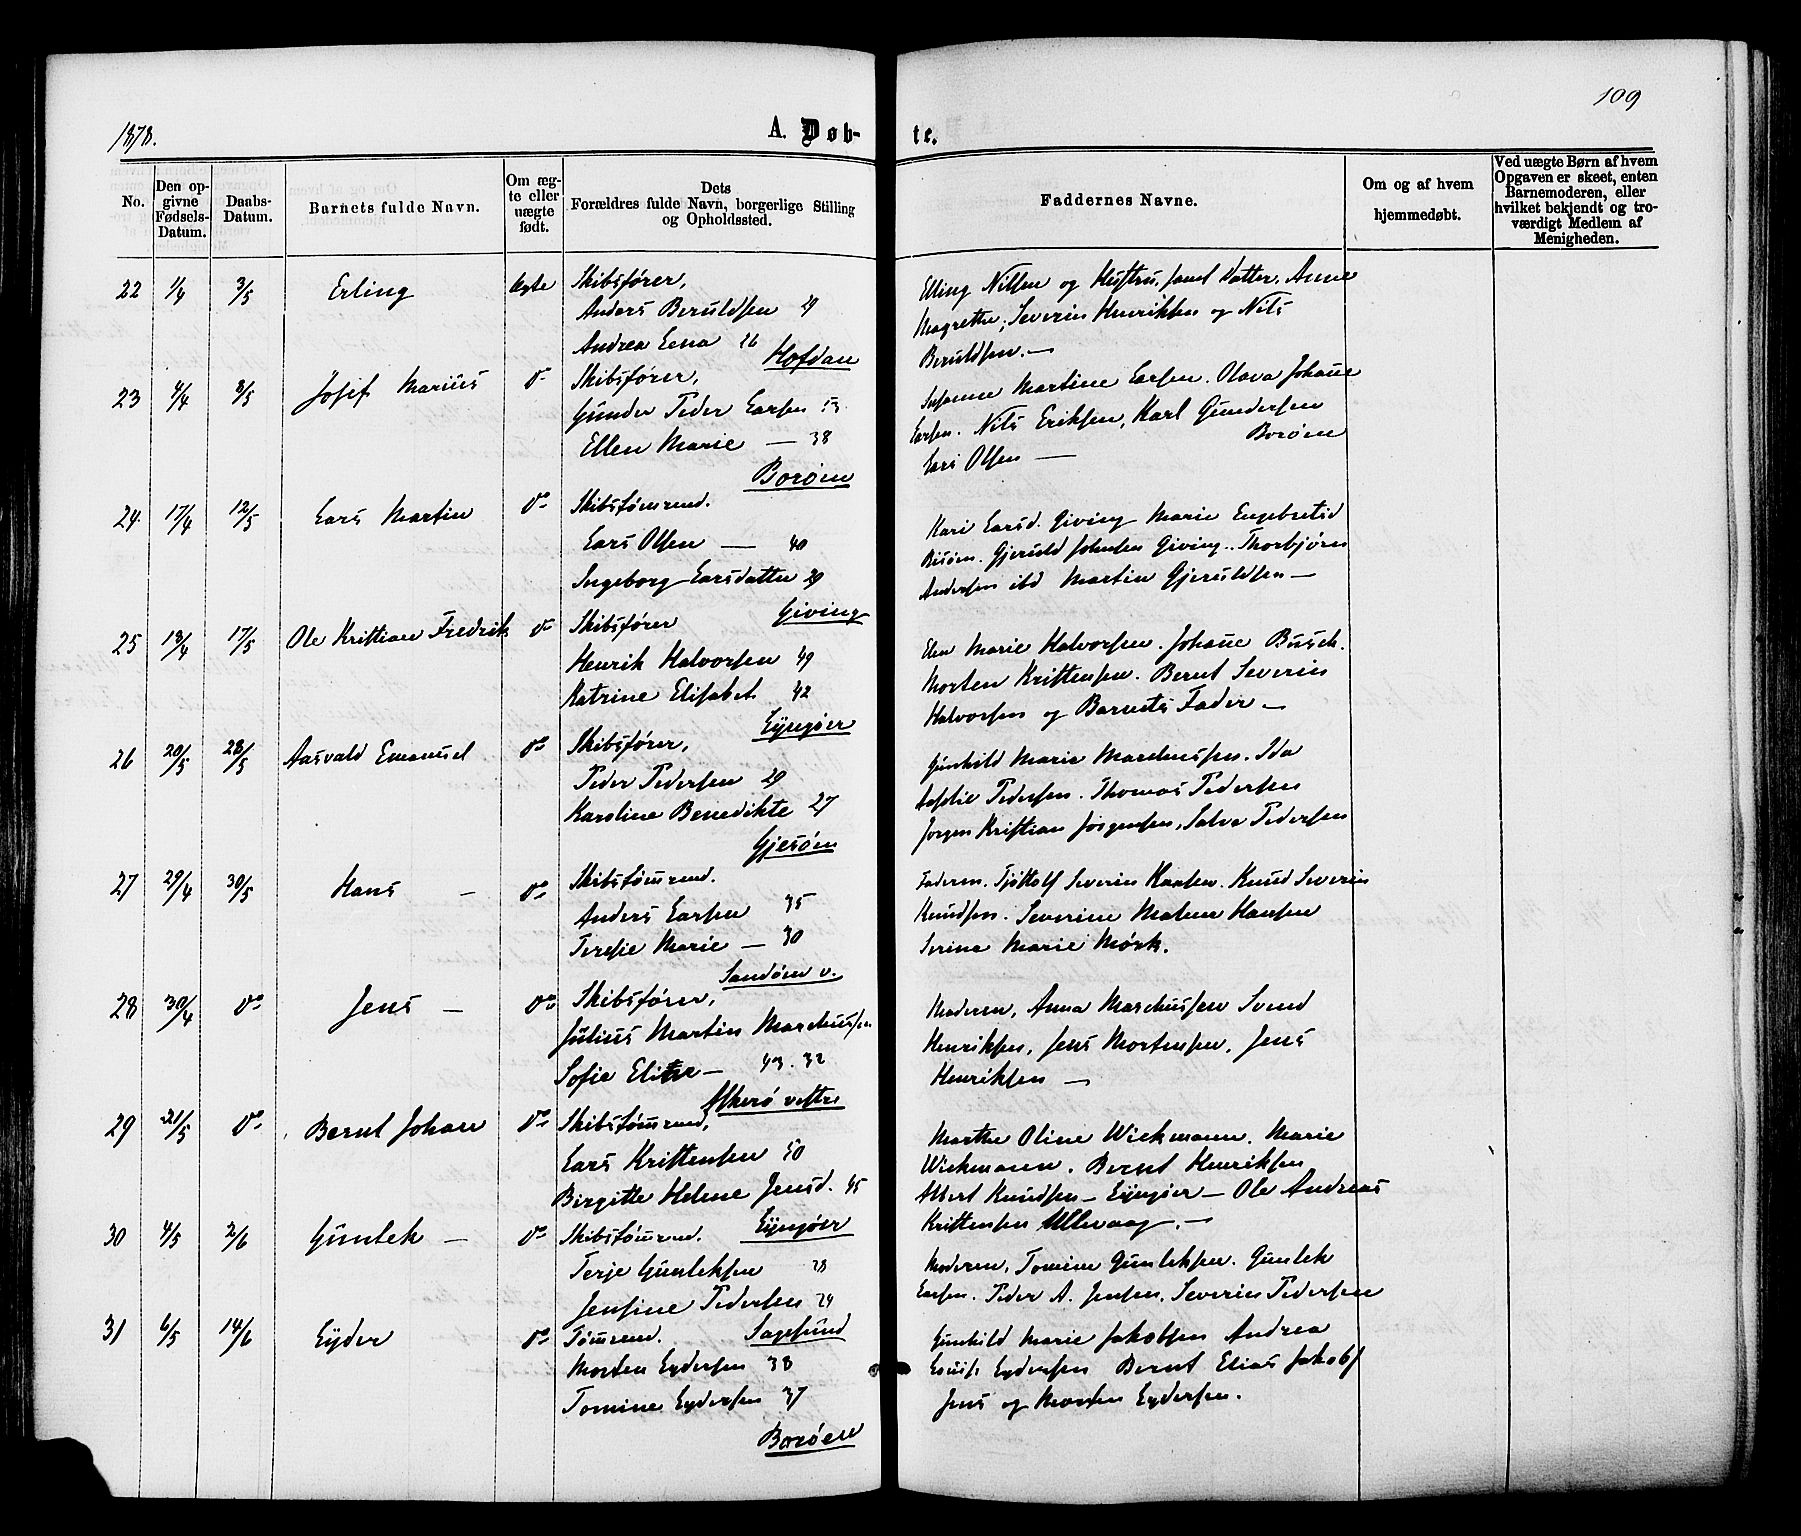 109
1878.
A. Døb-
te.
No.
Den op-
givne
Fødsels-
Datum.
Daabs-
Datum.
Barnets fulde Navn.
Om æg-
te eller
uægte
født.
Dets
Forældres fulde Navn, borgerlige Stilling
og Opholdssted.
Faddernes Navne.
Om og af hvem
hjemmedøbt.
Ved uægte Børn af hvem
Opgaven er skeet, enten
Barnemoderen, eller
hvilket bekjendt og tro-
værdigt Medlem af
Menigheden.
22 1/4 3/5 Erling ægte Skibsfører,
Anders Beruldsen 29
Andrea Lena 26
Hofdan
Elling Nilsen og Hustru, samt Datter, Anne
Magrethe, Severin Henriksen og Nils
Beruldsen. —
23 4/4 3/5 Josef Marius do Skibsfører,
Gunder Peder Larsen 53
Ellen Marie — 38
Borøen
Susanne Martine Larsen. Olava Johanne
Larsen. Nils Eriksen, Karl Gundersen
Borøen
Lars Olsen —
24. 17/4 12/5 Lars Martin do Skibstømrmd.
Lars Olsen — 40
Ingeborg Larsdatter 29
Giving
Kari Larsd. Giving Marie Engebretsd
Gjeruld Johnsen Giving. Thorbjørn
Andersen ibd Martin Gjeruldsen —
25 13/4 17/5 Ole Kristian Fredrik do Skibsfører
Henrik Halvorsen 49
Katrine Elisabet 42
Lyngøer
Elen Marie Halvorsen. Johanne Busch.
Morten Kristensen. Bernt Severin
Halvorsen og Barnets Fader —
26 20/5 28/5 Aasvald Emanuel do Skibsfører,
Peder Pedersen 29
Karoline Benedikte 27
Gjesøen
Gunhild Marie Marchussen. Ida
Pedersen. Thomas Pedersen
Jørgen Kristian Jørgensen, Salve Pedersen
27 29/4 30/5 Hans — do Skibstømrmd.
Anders Larsen 35
Teresie Marie — 30
Sandøen v.
Faderen. Tjøttolf Severin Hansen. Knud Severin
Knudsen. Severine Malene Hansen
Serine Marie Mørk.
28 30/4 do Jens — do Skibsfører,
Julius Martin Marchussen
Sofie Elise — 43. 32
Askerø vestre
Moderen, Anna Marchussen Svend
Henriksen, Jens Mortensen, Jens
Henriksen —
29 21/5 do Bernt Johan do Skibstømrmd,
Lars Kristensen 50
Birgitte Helene Jensd. 45
Lyngøer
Marthe Oline Wickmann. Marie
Wickmann. Bernt Henriksen
Albert Knudsen — Lyngøer — Ole Andreas
Kristensen Ulevaag. —
30 4/5 2/6 Gunlek — do Skibstømrmd.
Terje Gunleksen 28
Jensine Pedersen 24
Sagesund
Moderen, Tomine Gunleksen. Gunlek
Larsen. Peder A. Jensen. Severin Pedersen
31 6/5 14/6 Lyder do Tømrmd.
Morten Lydersen 38
Tomine Lydersen 37
Borøen
Gunhild Marie Jakobsen Andrea
Lovise Lydersen Bernt Elias Jakobs
Jens og Morten Lydersen.